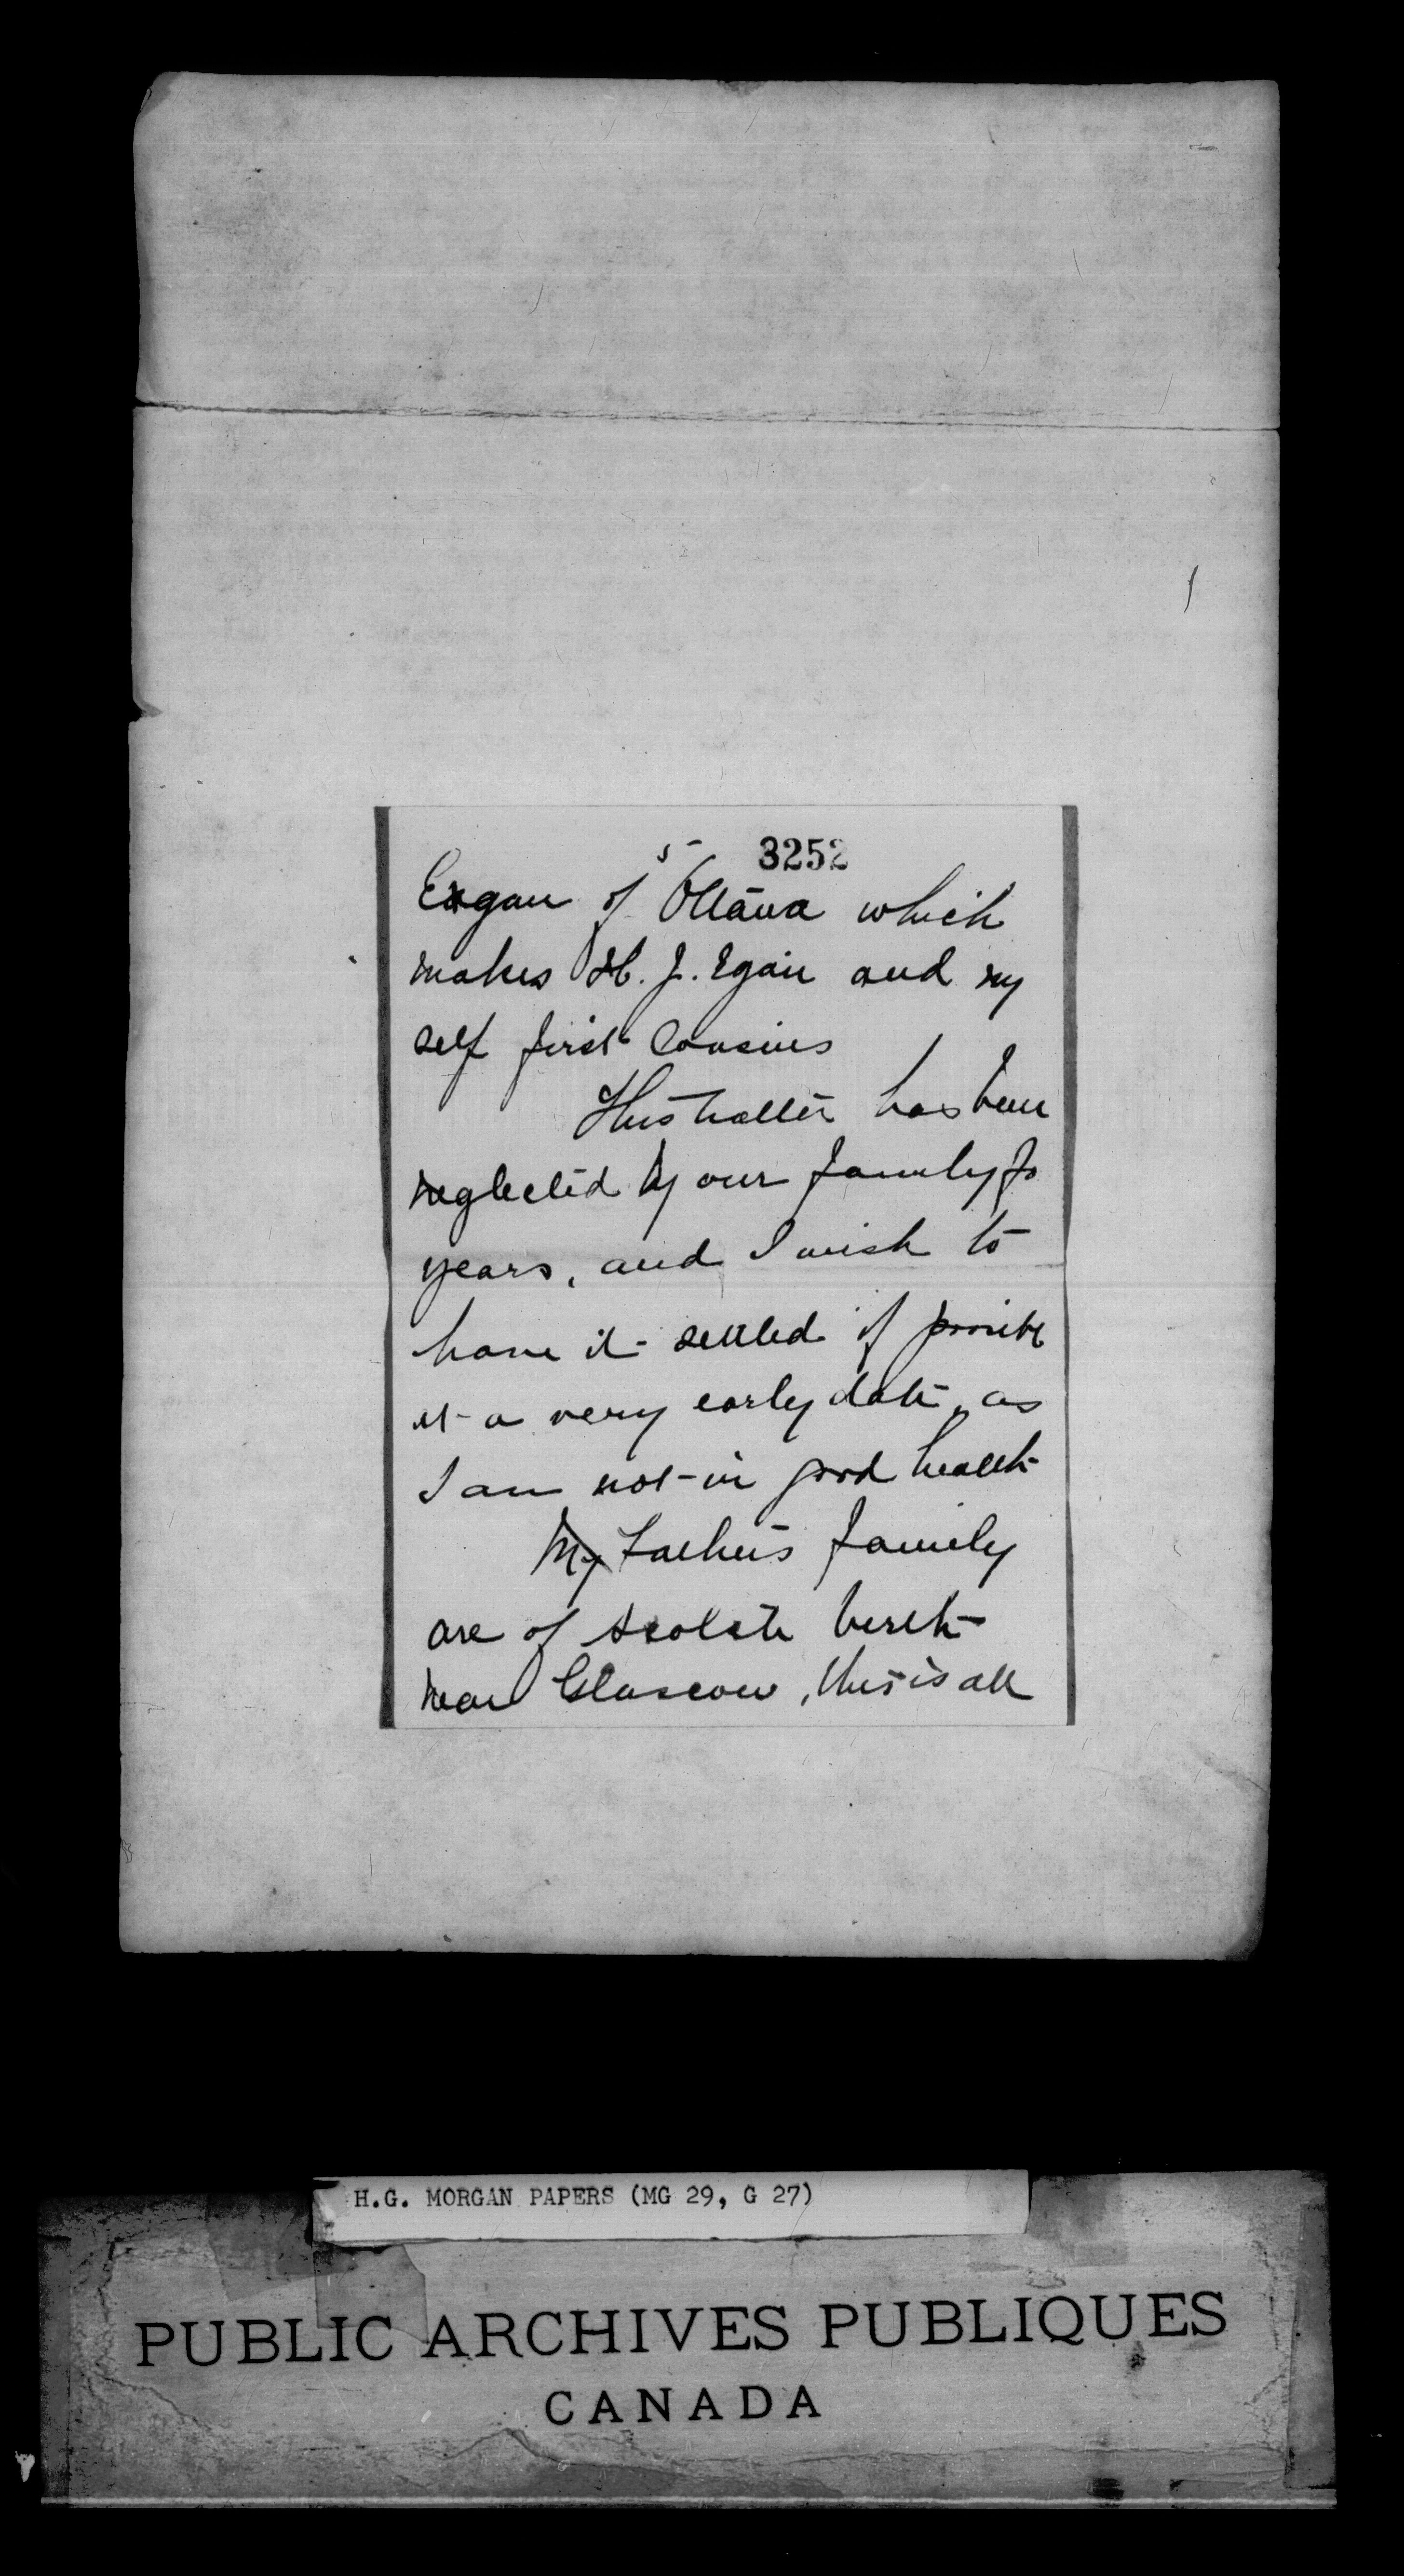 5 3252
Eagan of Ottawa which
makes H. J. Egan and my
self first Cousins
This matter has been
neglected by our family fo
years, and I wish to
have it settled if possible
at a very early date, as
I am not in good health
My Father's family
are of Scotch birth
near Glascow, this is all
H.G. MORGAN PAPERS (MG 29, G 27)
PUBLIC ARCHIVES PUBLIQUES
CANADA